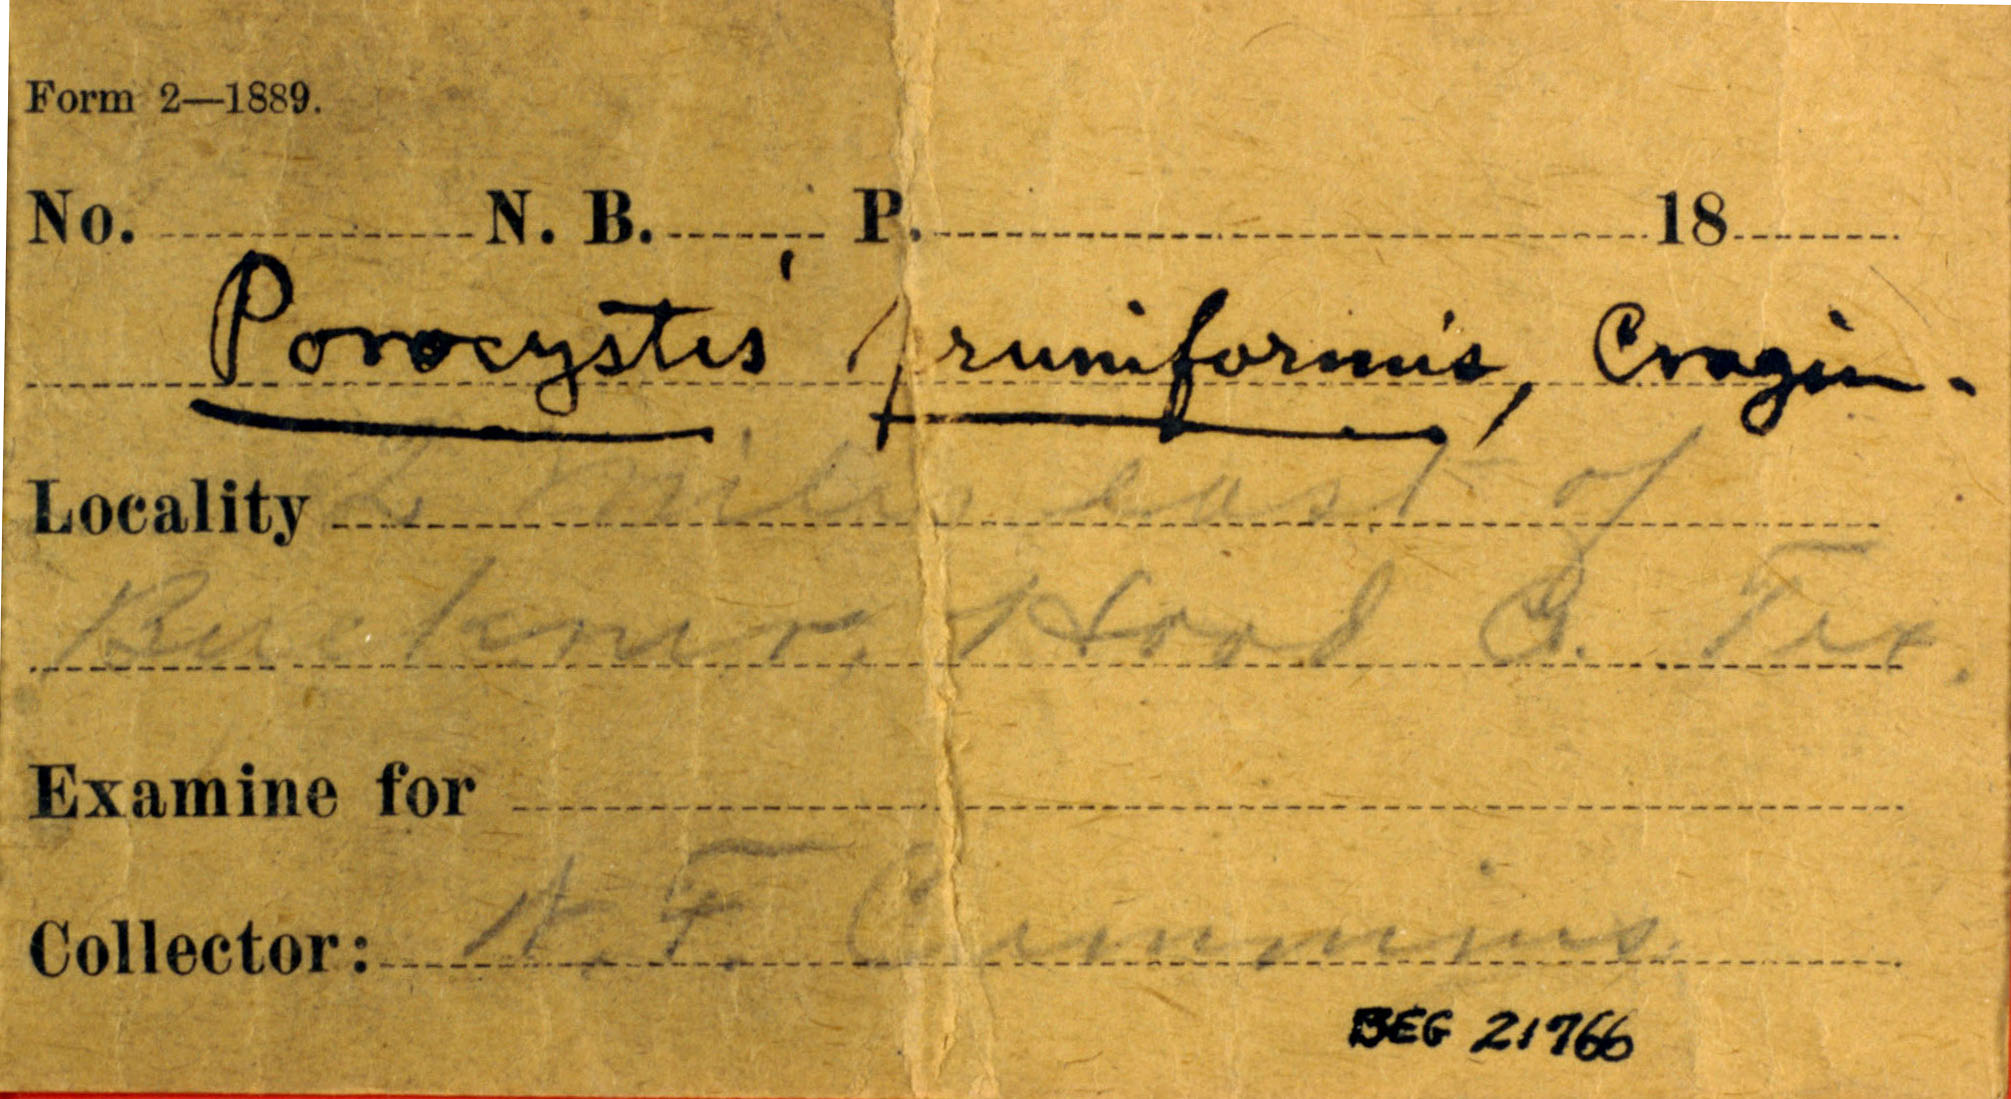 Form 2—1889.
No. N. B. P. 18
Porocystis pruniformis, Cragin.
Locality 2 Miles east of
Buckner, Hood Co. Tex.
Examine for
Collector: W. F. Cummins
BEG 21766